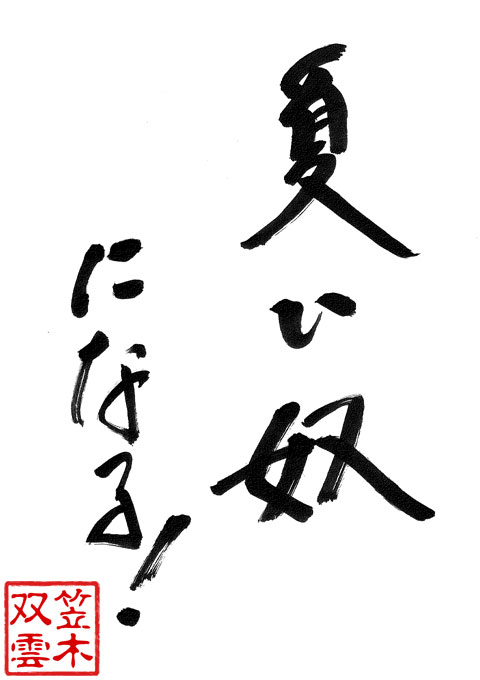 夏い奴
になる!
笠木
双雲